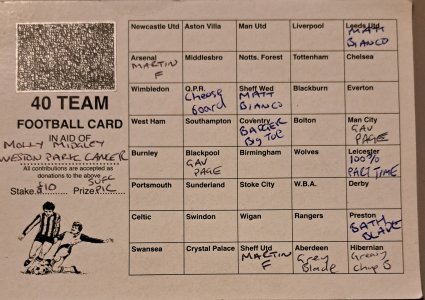 Newcastle Utd Aston Villa Man Utd Liverpool Leeds Utd
MATT
BIANCO
Arsenal Middlesbro Notts. Forest Tottenham Chelsea
MARTIN
F
Wimbledon Q.P.R. Sheff Wed Blackburn Everton
Cheese MATT
Board BIANCO
West Ham Southampton Coventry Bolton Man City
BADGER GAV
Big TOP PAGE
Burnley Blackpool Birmingham Wolves Leicester
GAV 100%
PAGE PART TIME
Portsmouth Sunderland Stoke City W.B.A. Derby
Celtic Swindon Wigan Rangers Preston
BATH
BLADE
Swansea Crystal Palace Sheff Utd Aberdeen Hibernian
MARTIN Grey Greasy
F Blade Chip
40 TEAM
FOOTBALL CARD
IN AID OF
MOLLY MIDGLEY
WESTON PARK CANCER
All contributions are accepted as
donations to the above
Stake £10 Prize